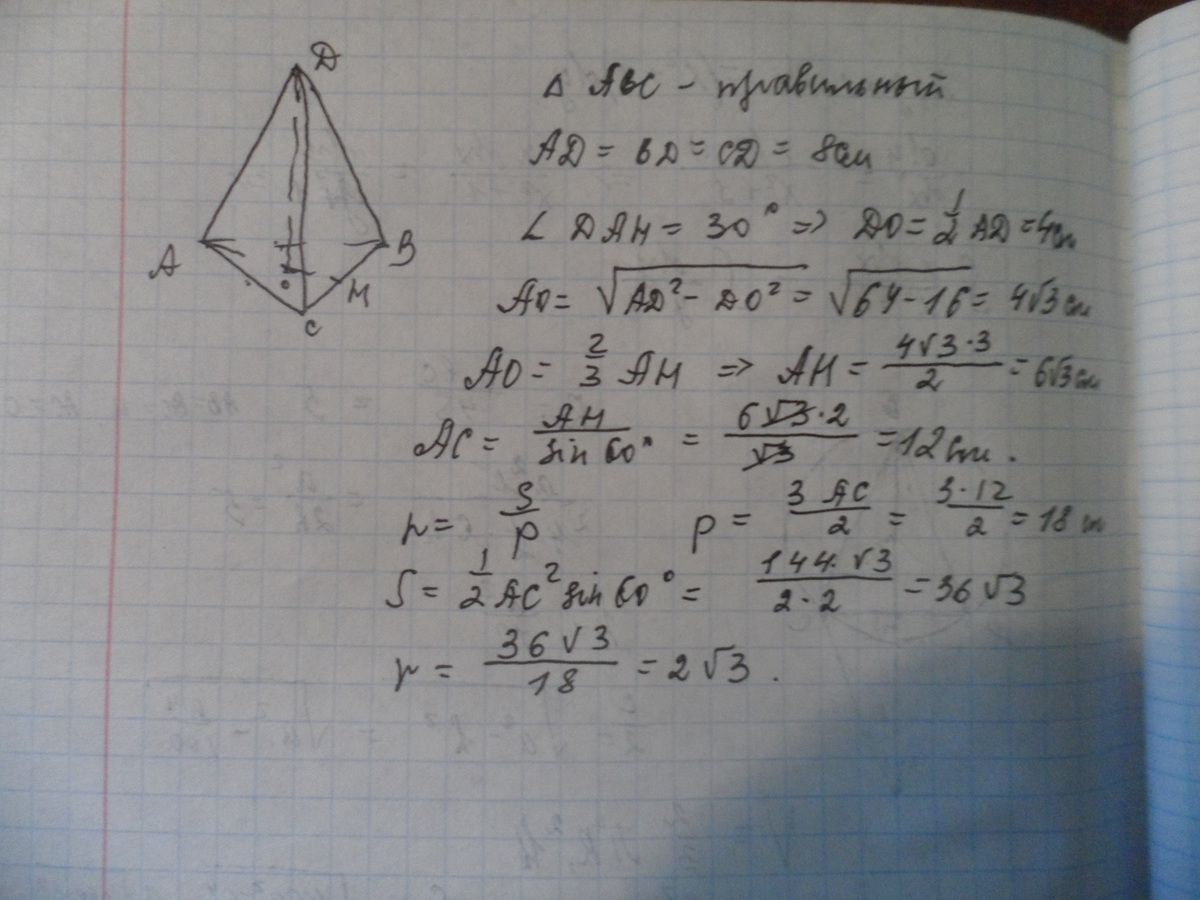 D
A
B
O
M
C
Δ ABC - правильный
AD = BD = CD = 8см
∠ DAM = 30° => DO = 1/2 AD = 4см
AO = √(AD² - DO²) = √(64 - 16) = 4√3 см
AO = 2/3 AM => AM = (4√3·3)/2 = 6√3 см
AC = AM/sin 60° = (6√3·2)/√3 = 12 см.
r = S/p p = 3AC/2 = (3·12)/2 = 18 см
S = 1/2 AC² sin 60° = (144·√3)/(2·2) = 36√3
r = 36√3/18 = 2√3.